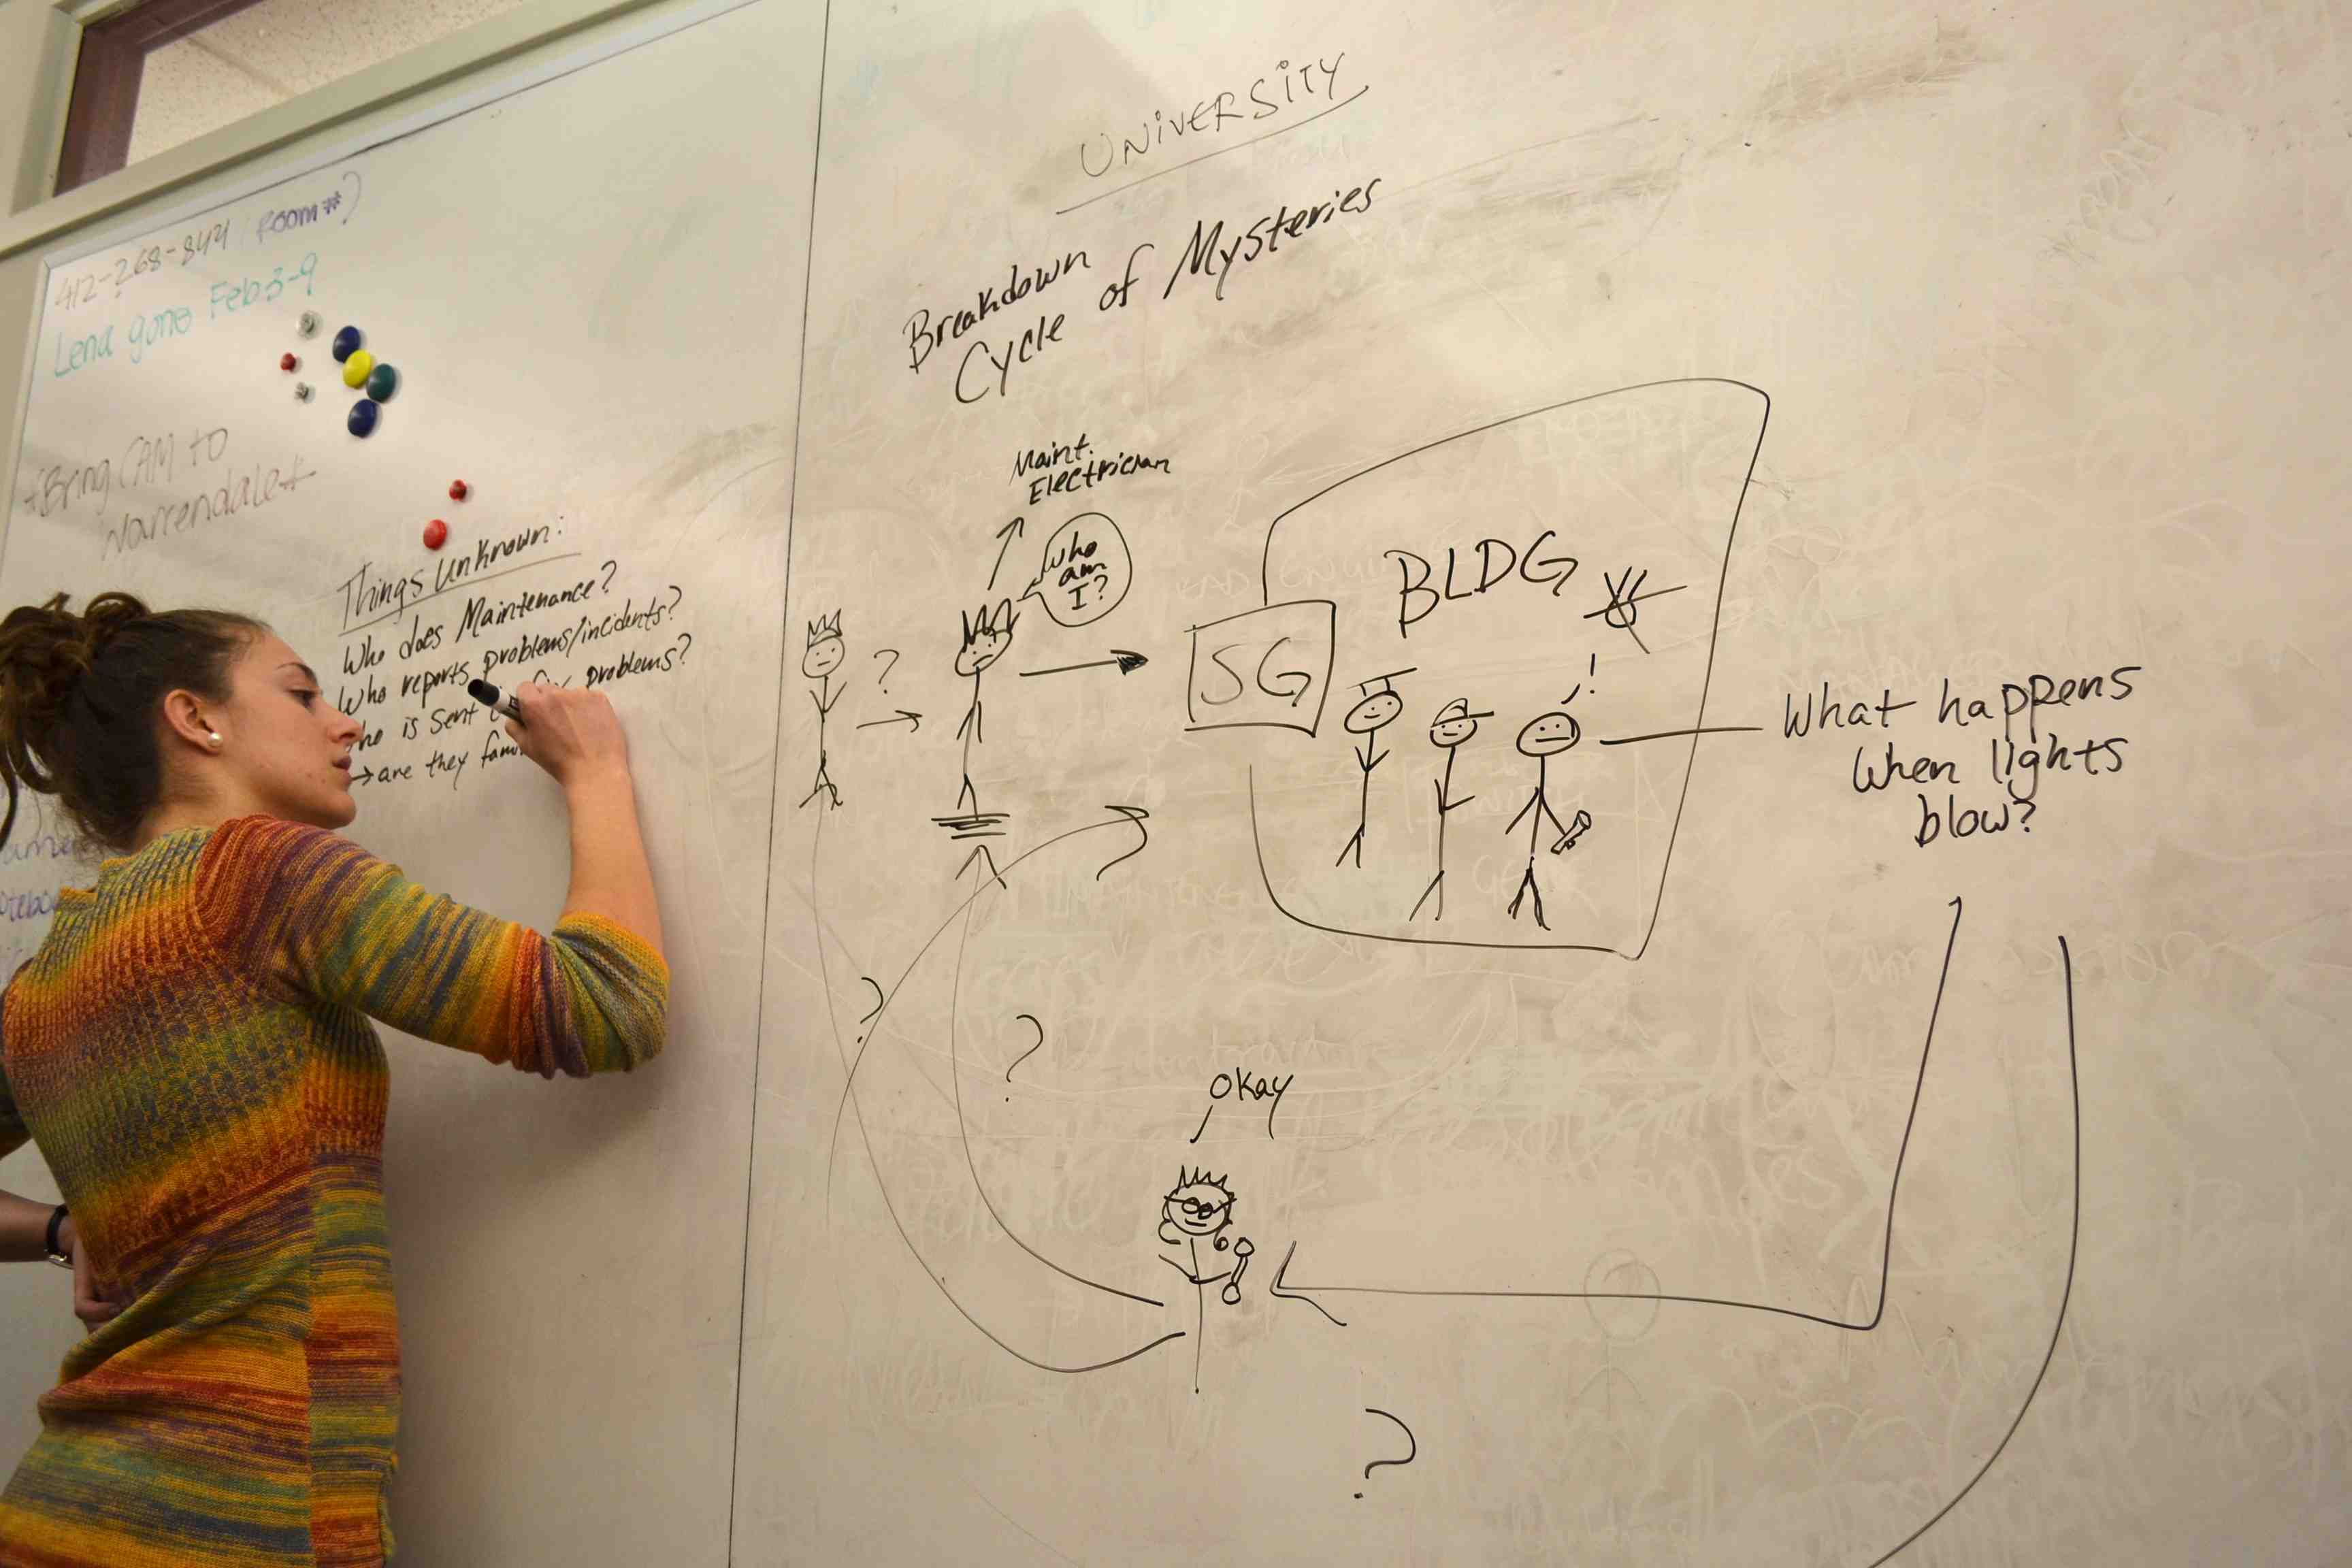 412-268-844 (Room#)
Lena gone Feb 3-9
*Bring CAM to
Warrendale*
Things Unknown:
Who does Maintenance?
Who reports problems/incidents?
who is sent problems?
→ are they
UNIVERSITY
Breakdown
Cycle of Mysteries
Maint.
Electrician
who
am
I?
?
SG
BLDG
!
What happens
When lights
blow?
?
?
?
okay
?